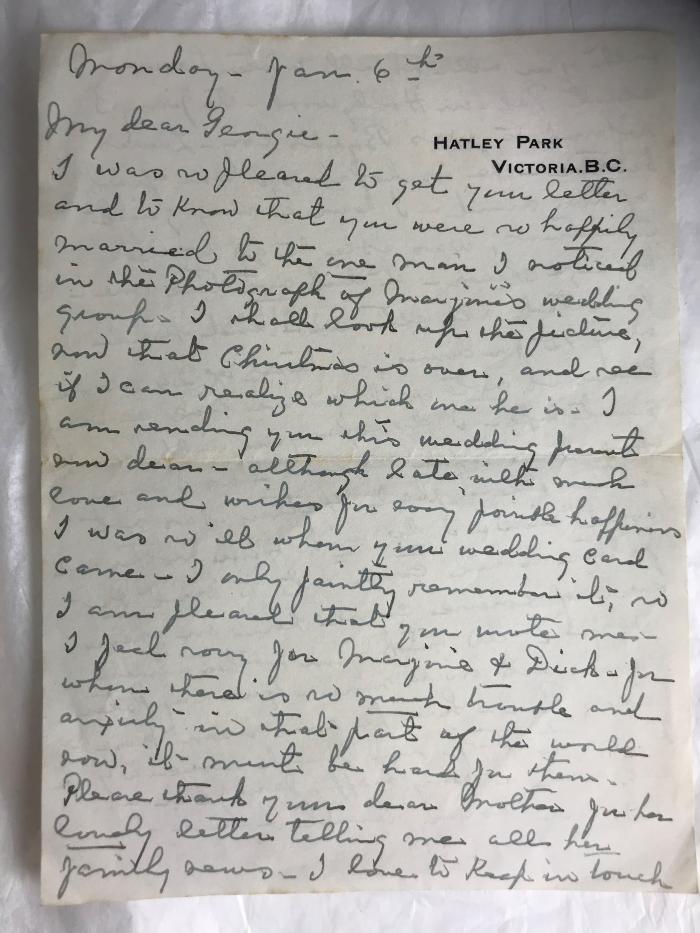 Monday - Jan. 6th
My dear Georgie -
HATLEY PARK
VICTORIA. B.C.
I was so pleased to get your letter
and to know that you were so happily
married to the one man I noticed
in the Photograph of Marjorie's wedding
group. I shall look up the picture,
now that Christmas is over, and see
if I can realize which one he is - I
am sending you this wedding present
now dear - although late with much
love and wishes for every possible happiness
I was so ill when your wedding card
came - I only faintly remember it, so
I am pleased that you wrote me -
I feel sorry for Marjorie & Dick - for
when there is so much trouble and
anxiety in that part of the world
now, it must be hard for them -
Please thank your dear Mother for her
lovely letter telling me all her
family news - I love to keep in touch